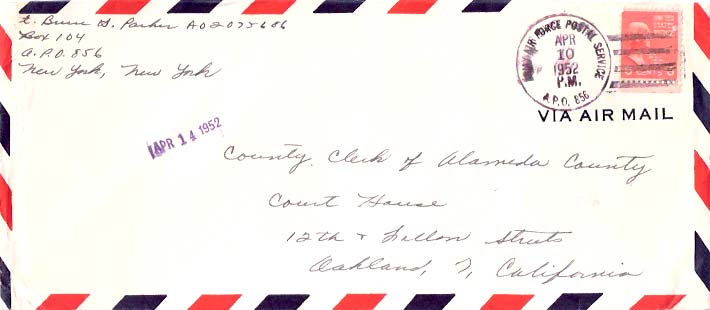 Lt. Bruce D. Parker AO2075686
Box 104
A.P.O. 856
New York, New York
ARMY AIR FORCE POSTAL SERVICE
APR
10
1952
P.M.
A.P.O. 856
UNITED STATES
6 CENTS 6
VIA AIR MAIL
APR 14 1952
County Clerk of Alameda County
Court House
12th & Fallon Streets
Oakland, 7, California